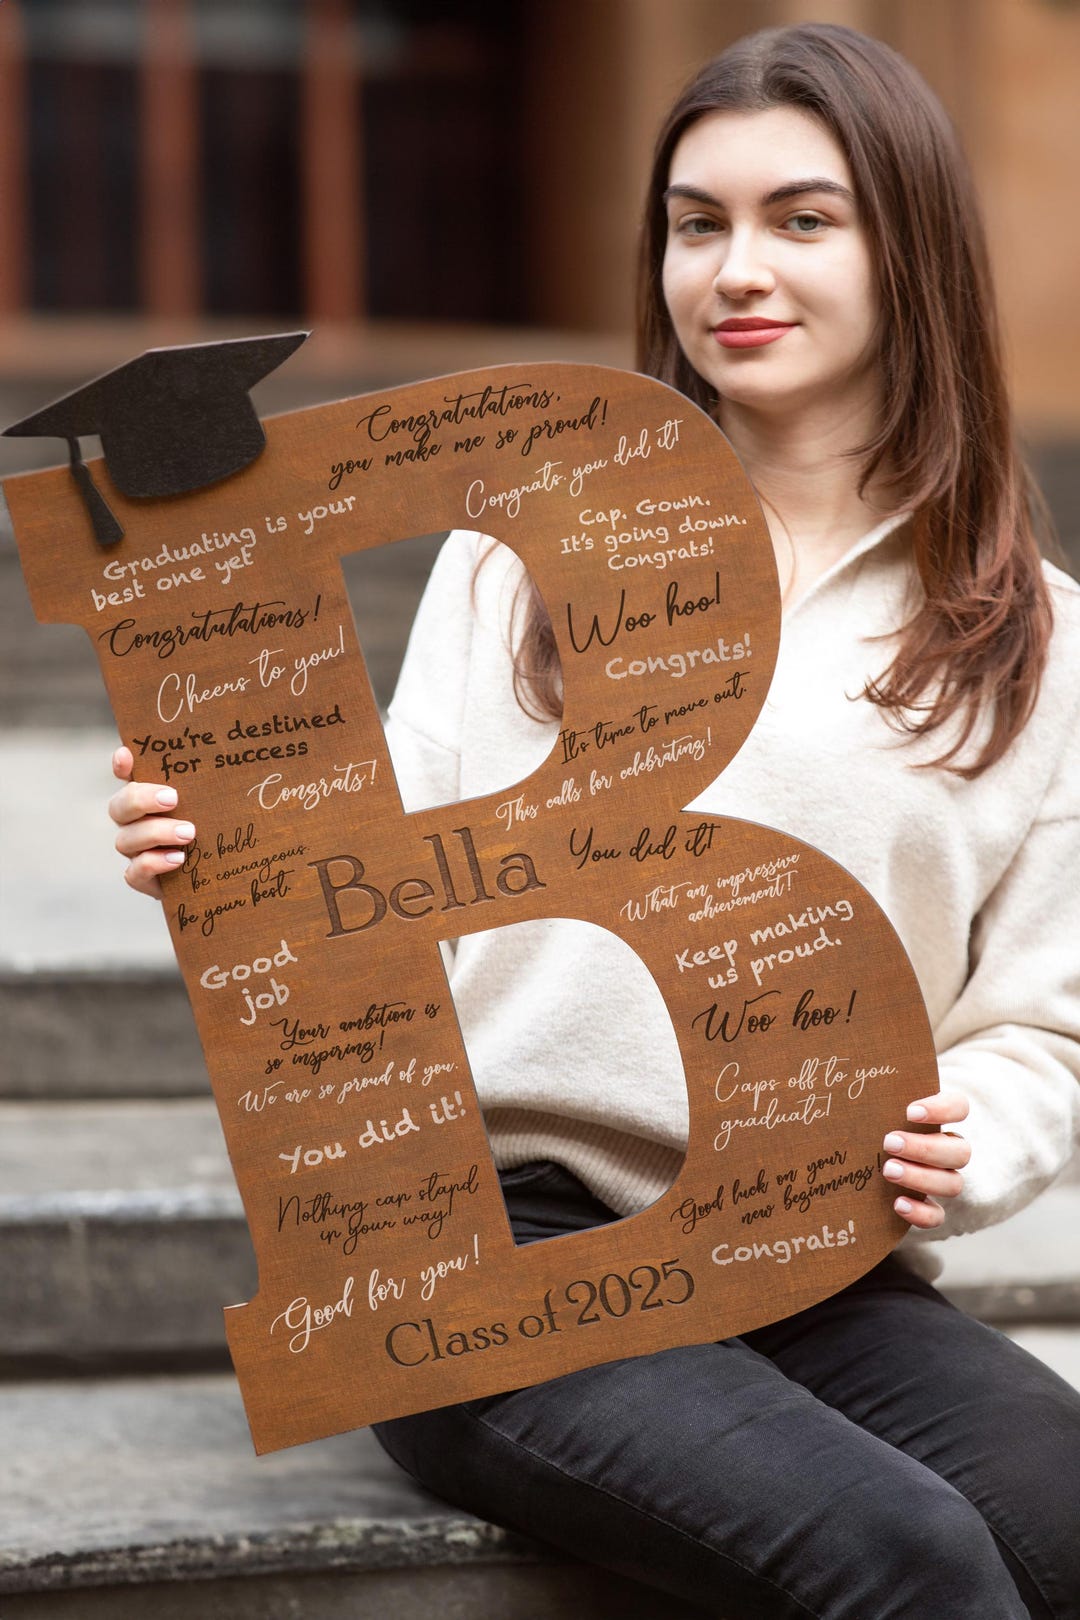 Congratulations,
you make me so proud!
Congrats, you did it!
Graduating is your
best one yet
Cap. Gown.
It's going down.
Congrats!
Congratulations!
Woo hoo!
Cheers to you!
Congrats!
You're destined
for success
It's time to move out.
Congrats!
This calls for celebrating!
Be bold.
be courageous.
be your best.
Bella
You did it!
What an impressive
achievement!
Good
job
Keep making
us proud.
Your ambition is
so inspiring!
Woo hoo!
We are so proud of you.
Caps off to you,
graduate!
You did it!
Nothing can stand
in your way!
Good luck on your
new beginnings!
Good for you!
Congrats!
Class of 2025